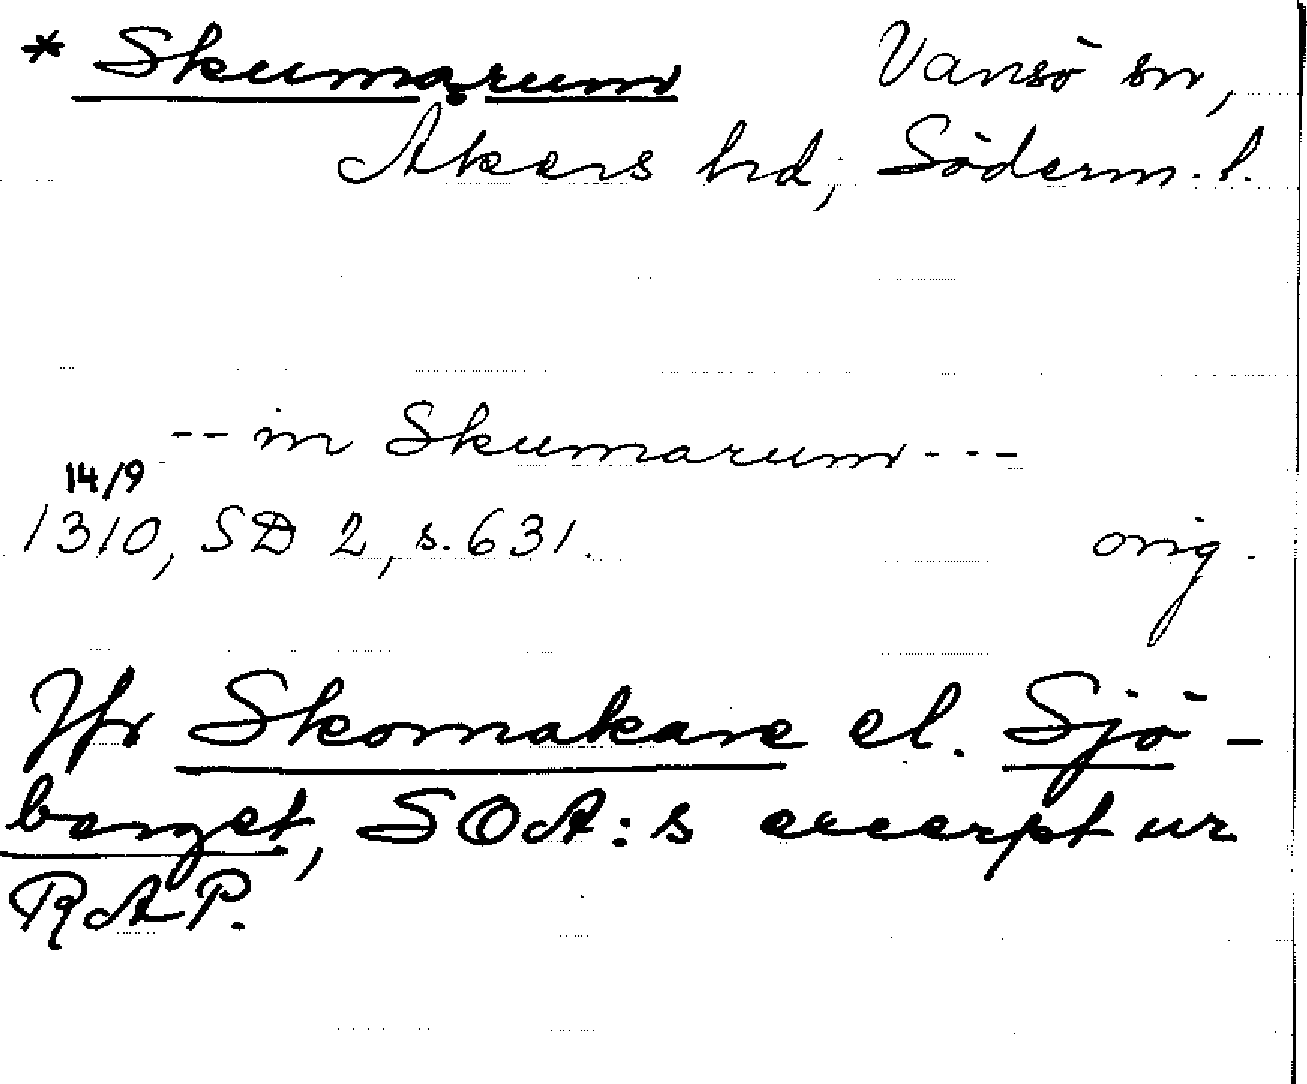 * Skumarum Vansö sn,
Åkers hd, Söderm. l.
-- in Skumarum ---
14/9
1310, SD 2, s. 631. orig.
Jfr Skomakare el. Sjö-
berget, SOA:s excerpt ur
RAP.